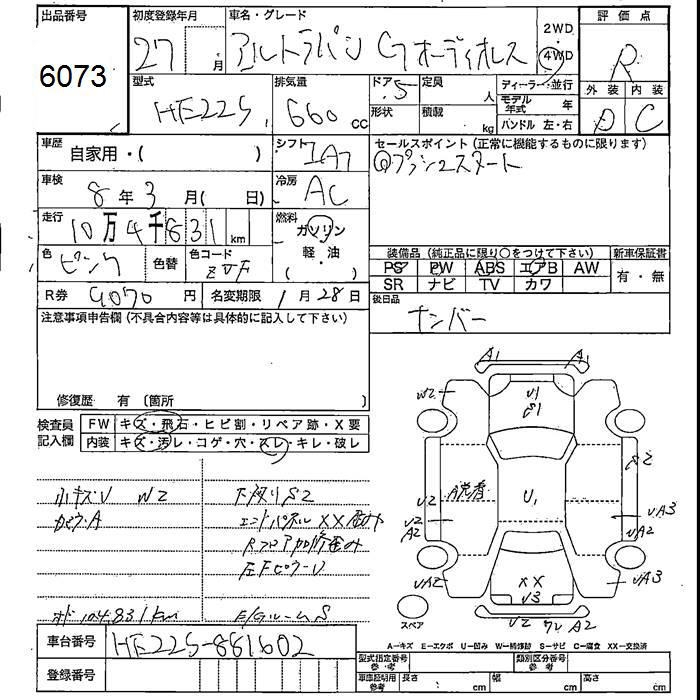 出品番号
6073
初度登録年月
27 月
車名・グレード
アルトラパン Gオーディオレス
2WD
・
4WD
評価点
R
型式
HE22S
排気量
660 cc
ドア 5
定員 人
形状
積載 kg
ディーラー・並行
モデル年式 年
ハンドル 左・右
外装 内装
D C
車歴
自家用・( )
シフト
IA7
セールスポイント (正常に機能するものに限ります)
◎プッシュスタート
車検
8年3月( 日)
冷房
AC
走行
10万4千831 km
燃料
ガソリン
軽・油
( )
色
ピンク
色替
色コード
ZVF
装備品 (純正品に限り○をつけて下さい)
新車保証書
PS PW ABS エアB AW
SR ナビ TV カワ
有・無
R券 9070 円
名変期限 1月28日
後日品
ナンバー
注意事項申告欄 (不具合内容等は具体的に記入して下さい)
修復歴 有 〔箇所
検査員
記入欄
FW キズ・飛石・ヒビ割・リペア跡・X要
内装 キズ・汚レ・コゲ・穴・スレ・キレ・破レ
小キズU W2
下廻りS2
エンドパネルXX
左Fピラー U
オド 104831km
E/GルームS
A1 A1
W2
U1
S2
U2
U2
A2
U1
UA3
UA2
UA2
XX
U3
UA3
U2 ワレ A2
スペア
A=キズ E=エクボ U=凹み W=補修跡 S=サビ C=腐食 XX=交換済
車台番号 HE22S-881602
登録番号
型式指定番号
参考
類別区分番号
参考
車庫証明用
参考
長さ cm
幅 cm
高さ cm